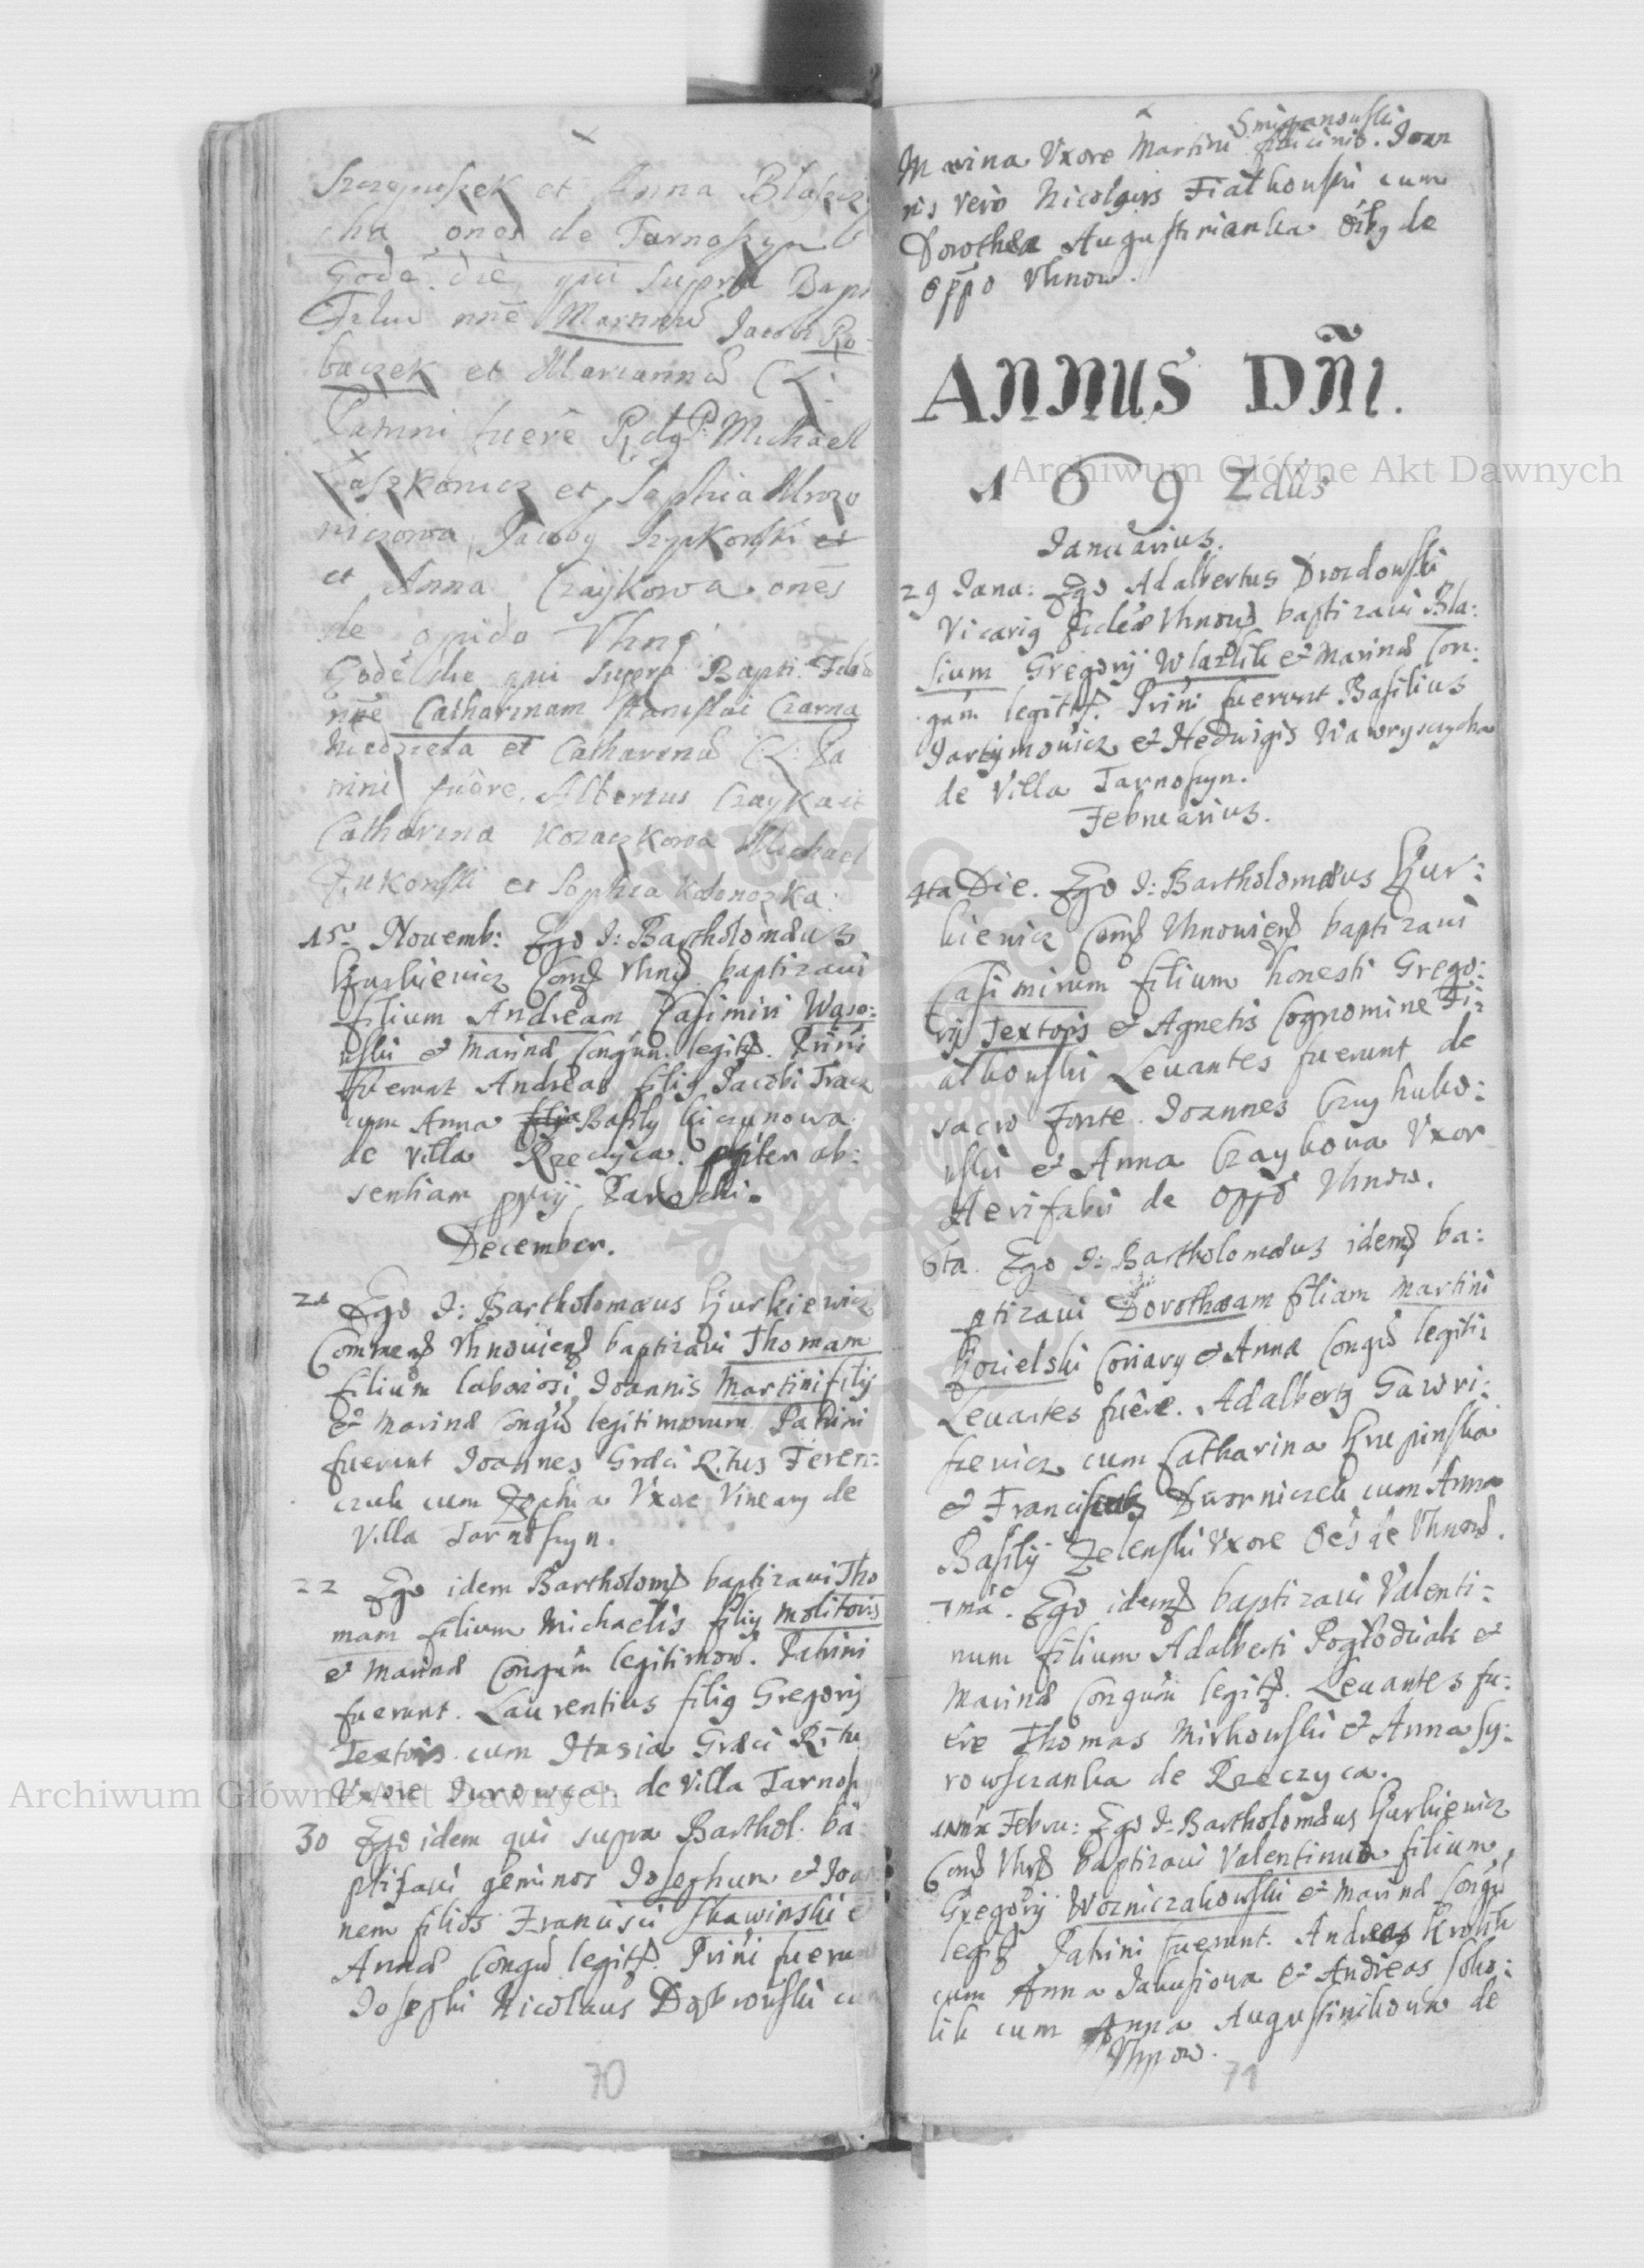 Szczepuszek et Anna Blaszczy
cha onēs de Tarnoszyn
Eodē die qui supra Bapt
Filiū nñe Martinū Jacobi Ro-
baczek et Mariannæ C. L.
Patrini fuere Michael
Paszkowicz et Sophia Mrozo
wiczowa, Jacoby Szyskowski et
et Anna Czaykowa onēs
de opido Vhnõ
Eodē die qui supra Bapti. Filiā
nñe Catharinam Stanislai Czarna
Niedziela et Catharinæ C. L. Pa
trini fuēre, Albertus Czayka et
Catharina Kozaczkowa Michael
Zukowski et Sophia
15. Nouemb: Ego J: Bartholomæus
Gurkiewicz Com Vhn baptizaui
filium Andream Casimiri Wąso:
wski et Marinæ Congun. legit. Prini
fuerunt Andreas filig Jacobi Tracz
cum Anna filia Basily Kiczunowa
de villa Rzeczyca. propter ab:
sentiam pprij Parochi.
December.
21 Ego J: Bartholomæus Gurkiewicz
Commend Vhnouiens baptizaui Thomam
filium laboriosi Joannis Martini filij
et Marinæ Congũ legitimorum Patrini
fuerunt Joannes Græci Ritus Feren:
czuk cum Zophia Vxore Vineary de
Villa Tarnoszyn.
22 Ego idem Bartholom baptizaui Tho
mam filium Michaelis filij Molitoris
et Marinæ Congum legitimor. Patrini
fuerunt. Laurentius filig Gregorij
Textoris cum Hasia Græci Ritus
Vxore Jurowca de Villa Tarnoszyn
30 Ego idem qui supra Barthol. ba
ptisaui geminos Josephum et Joan
nem filios Francisci Skawinski et
Annæ Congũ legit. Prini fuerunt
Josephi Nicolaus Dąbrowski cum
70
Smiganowski
Marina Vxore Martini . Joan
nis verò Nicolaus Fiałkowski cum
Dorothea Augustinianka de
oppo Vhnow.
ANNUS DÑI.
1692dus
Januarius.
29 Janu: Ego Adalbertus Drozdowski
Vicarig Ecclæ Vhnous baptizaui Bla:
sium Gregorij Wlazlik et Marinæ Con:
gum legit. Prini fuerunt Basilius
Jartymowicz et Hedwigis Wawrysczycha
de Villa Tarnoszyn.
Februarius.
4ta Die. Ego J: Bartholomæus Gur:
kiewicz Com Vhnouiens baptizaui
Casimirum filium honesti Grego:
rij Textoris et Agnetis Cognomine Fi:
alkowski Leuantes fuerunt de
sacro Fonte. Joannes Grzyhubo:
wski et Anna Czaykowa Vxor
Aerifabri de Oppo Vhnow.
6ta. Ego J: Bartholomæus idem ba:
ptizaui Dorothæam filiam Martini
Kozielski Coriary et Annæ Congũ legiti:
Leuantes fuere. Adalbertg Gawri:
siewicz cum Catharina Krupinska
et Franciscus Dworniczek cum Anna
Basilij Zelenski Vxore de Vhnow.
7ma. Ego idem baptizaui Valenti:
num filium Adalberti Pogłodziak et
Marinæ Congum legit. Leuantes fu:
ere Thomas Mirkowski et Anna Sy:
rowsczanka de Rzeczyca.
Febru: Ego J: Bartholomæus Gurkiewicz
Com Vhn baptizaui Valentinum filium
Gregorij Wozniczakowski et Marinæ Congũ
legit Patrini fuerunt. Andreas Krolik
cum Anna Jakusiowa et Andreas Soko:
lik cum Anna Augustinikowa de
Vhnow.
71
Archiwum Główne Akt Dawnych
Archiwum Główne Akt Dawnych